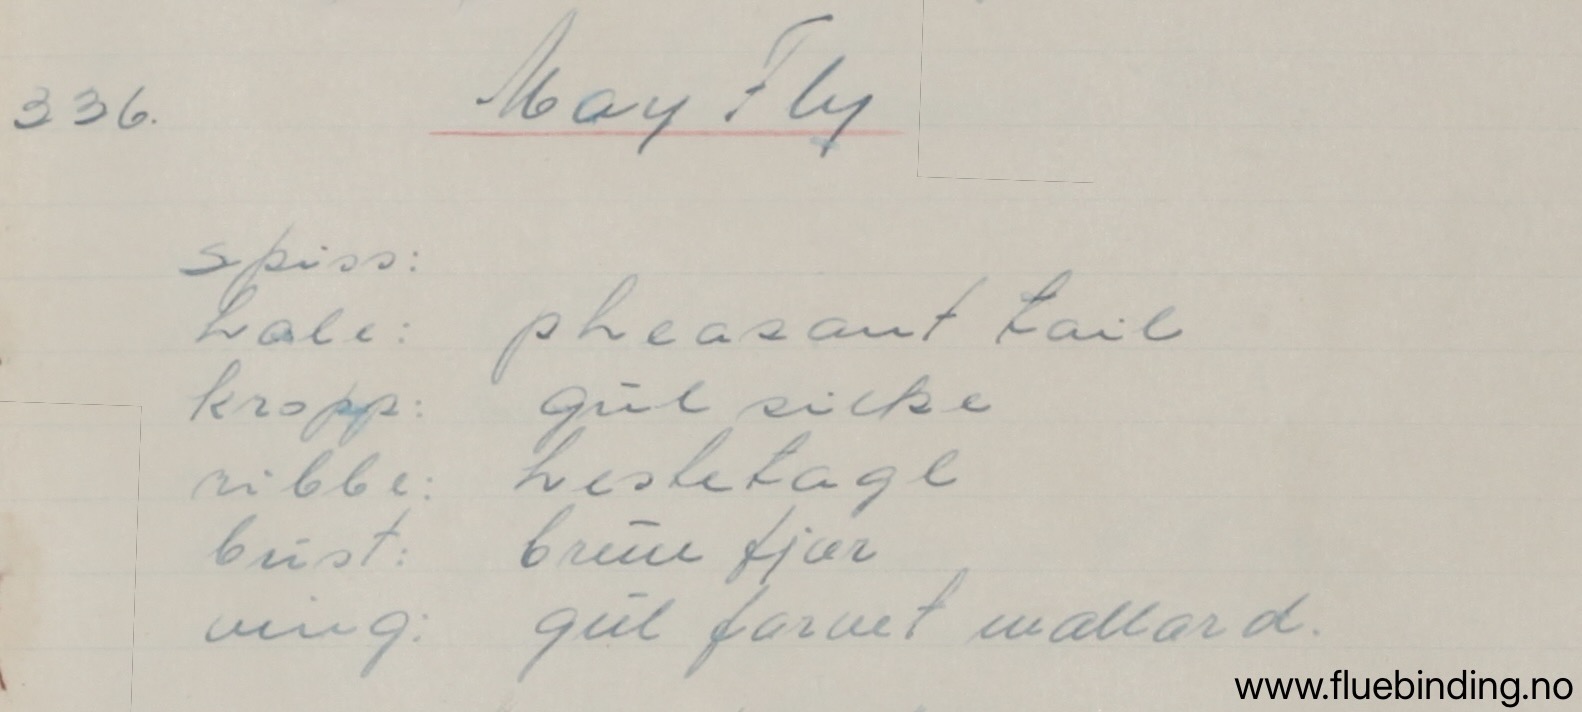 336. May Fly
spiss:
hale: pheasant tail
kropp: gūl silke
ribbe: hestetagl
būst: brūn fjær
ving: gūl farvet mallard.
www.fluebinding.no